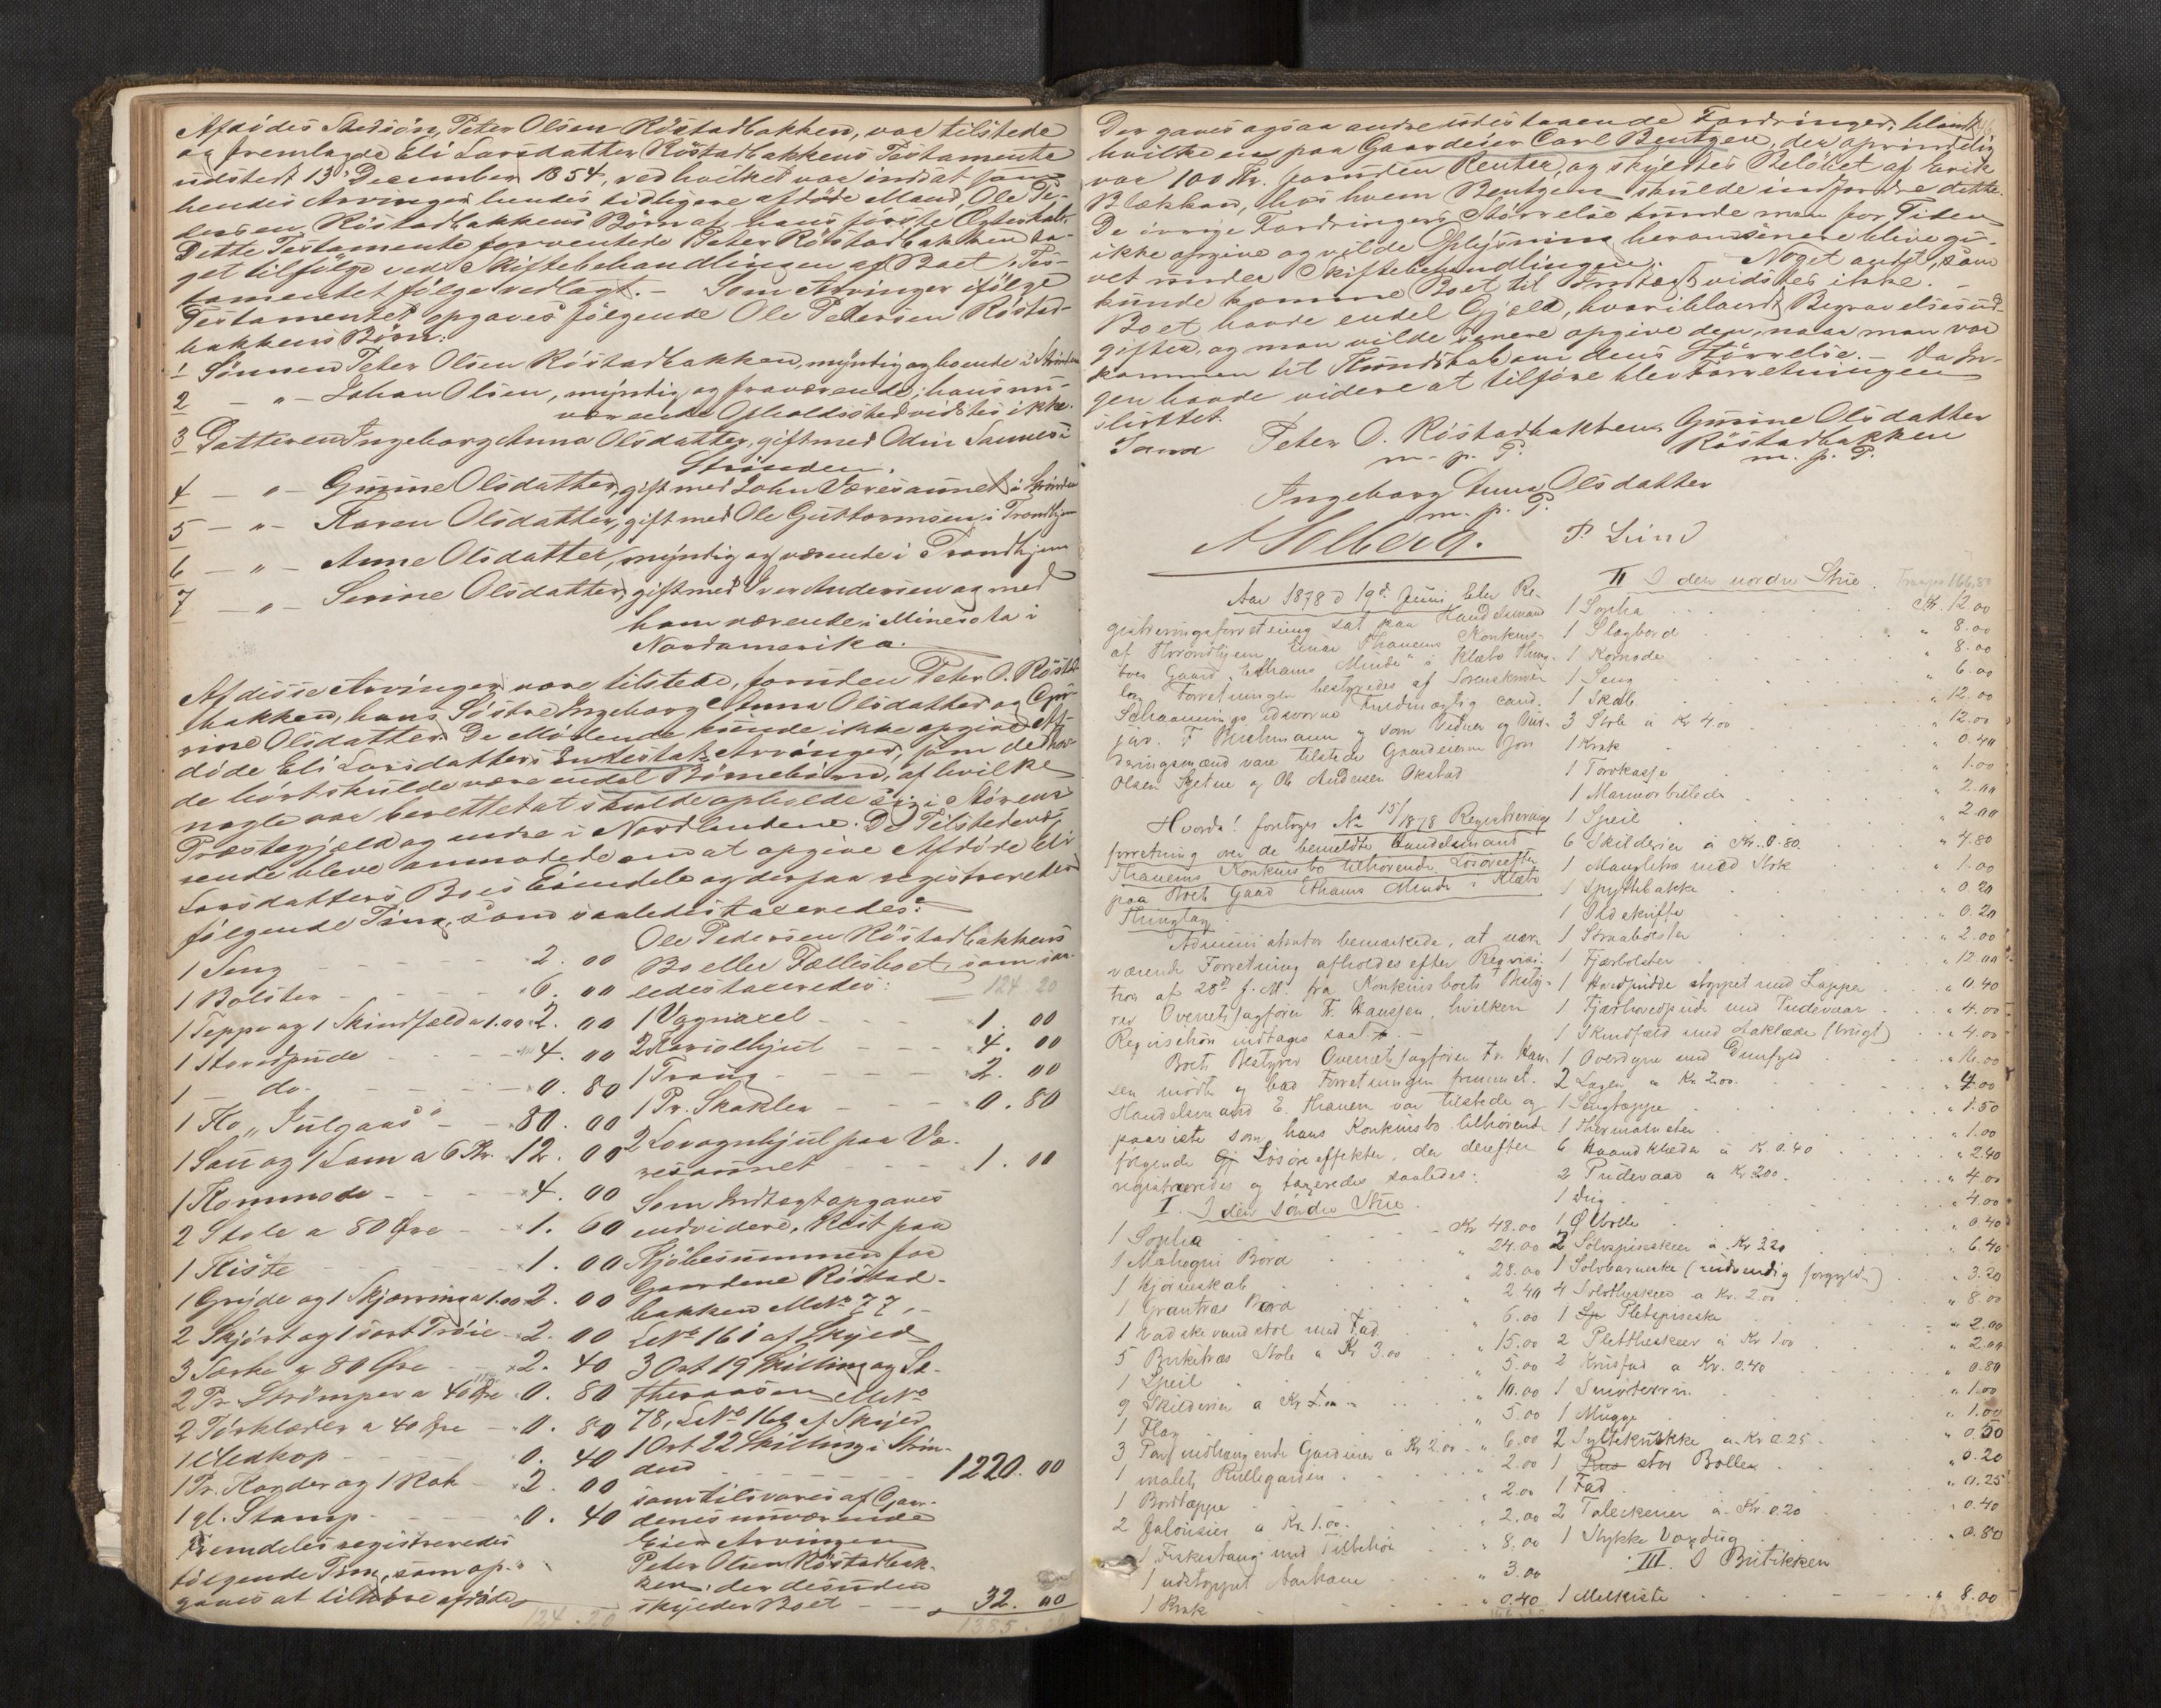 Afdødes Stedsøn, Peter Olsen Röstadbakken, var tilstede
og fremlagde Eli Larsdatter Röstadbakkens Testamente
udstedt 13de December 1854, ved hvilket var indsat som
hendes Arvinger hendes tidligere afdöde Mand, Ole Pe-
dersen Röstadbakkens Börn af hans förste Ægteskab.
Dette Testamente forventede Peter Röstadbakken ta-
get tilfölge ved Skiftebehandlingen af Boet. Tes-
tamentet fölger vedlagt. — Som Arvinger ifölge
Testamentet opgaves fölgende Ole Pedersen Röstad-
bakkens Börn:
1 Sönnen Peter Olsen Röstadbakken, myndig og boende i Strinden
2 — " — Johan Olsen, myndig og fraværende; hans nu-
værende Opholdssted vidstes ikke.
3 Datteren Ingeborg Anna Olsdatter, gift med Odin Saunes i
Strinden.
4 — " — Gurine Olsdatter, gift med John Væresaunet i Strinden
5 — " — Karen Olsdatter, gift med Ole Guttormsen i Trondhjem
6 — " — Anne Olsdatter, myndig og værende i Trondhjem
7 — " — Serine Olsdatter, gift med Iver Andersen og med
ham værende i Minesota i
Nordamerika.
Af disse Arvinger vare tilstede, foruden Peter O. Röstad-
bakken, hans Söstre Ingeborg Anna Olsdatter og Gu-
rine Olsdatter. De Mödende kunde ikke opgive Af-
döde Eli Larsdatters Intestat-Arvinger, som de hav-
de hört skulde være endel Börnebörn, af hvilke
nogle var berettet at skulde opholde sig i Störens
Præstegjeld og andre i Nordlandene. De Tilstedevæ-
rende bleve anmodede om at opgive Afdöde Eli
Larsdatters Boes Eiendele og derpaa registreredes
fölgende Ting, som saaledes taxeredes:
1 Seng - - - 2.00
1 Bolster - - - 6.00
1 Teppe og 1 Skindfæld a 1.00 2.00
1 Hovedpude - - 4.00
1 — do. - - - 0.80
1 Ko "Julgaas" - - 80.00
1 Sau og 1 Lam a 6 Kr. 12.00
1 Kommode - - - 4.00
2 Stole a 80 Øre - - 1.60
1 Kiste - - - 1.00
1 Gryde og 1 Skjærring a 1.00 2.00
2 Skjört og 1 sort Tröie 2.00
3 Særke a 80 Øre - - 2.40
2 Pr. Strömper a 40 Øre 0.80
2 Törklæder a 40 Øre - 0.80
1 Ølkop - - - 0.40
1 Pr. Karder og 1 Rok - 2.00
1 gl. Stamp - - - 0.40
Fremdeles registreredes
fölgende Ting, som op-
gaves at tilhöre afdöde
124.20
Ole Pedersen Röstadbakkens
Bo eller Fællesboet, som saa-
ledes taxeredes: 124 20
1 Vognaxel - - - 1.00
2 Kariolhjul - - - 4.00
1 Traug - - - 2.00
1 Pr. Skakler - - - 0.80
2 Lovognhjul paa Væ-
resaunet - - - 1.00
Som Indtægt opgaves
endvidere, Rest paa
Kjöbesummen for
Gaardene Röstad-
bakken MNo 77,
LNo 161 af Skyld
3 Ort 19 Skilling og
MNo
78, LNo 162 af Skyld
1 Ort 22 Skilling i Strin-
den - - - 1220.00
som tilsvares af Gaar-
denes nuværende
Eier Arvingen
Peter Olsen Röstadbak-
ken, der desuden
skylder Boet - - 32.00
1385.
Der gaves ogsaa andre udestaaende Fordringer, blandt
hvilke en paa Gaardeier Carl Bentzen, der oprindelig
var 100 Kr. foruden Renter, og skyldtes Belöbet af Erik
Blækkan, hos hvem Bentzen skulde indfordre dette.
De övrige Fordringers Störrelse kunde man for Tiden
ikke opgive og vilde Oplysning herom senere blive gi-
vet under Skiftebehandlingen. — Noget andet, som
kunde komme Boet til Indtægt vidstes ikke. —
Boet havde endel Gjeld, hvoriblandt Begravelsesud-
gifter, og man vilde senere opgive den, naar man var
kommen til Kundskab om dens Störrelse. — Da In-
gen havde videre at tilföre blev Forretningen
sluttet.
Peter O. Röstadbakken Gurine Olsdatter
m. p. P. Röstadbakken
m. p. P.
Ingeborg Anna Olsdatter
m. p. P.
A Solberg. P. Lund
Aar 1878 d 19de Juni blev Re-
gistreringsforretning sat paa Handelsmand
af Throndhjem Einar Thanems Konkurs-
boes Gaard "Ethams Minde" i Klæbo Thing-
lag. Forretningen bestyredes af Sorenskriver
Schannings edsvorne Fuldmægtig cand.
jur. F Buchmann og som Vidner og Vur-
deringsmænd vare tilstede Gaardeierne Jon
Olsen Sjetne og Ole Andersen Okstad
Hvorda! foretoges No 15/1878 Registrerings-
forretning over de bemeldte Handelsmand
Thanems Konkursbo tilhørende Løsøreeffekter
paa Boets Gaard Ethams Minde i Klæbo
Thinglag.
Administrator bemærkede, at nær-
værende Forretning afholdes efter Reqvisi-
tion af 28de f. M. fra Konkursboets Besty-
rer Overretssagfører Fr. Hanssen, hvilken
Reqvisition indtages saal. —
Boets Bestyrer Overretssagfører Fr. Han-
sen mødte og bad Forretningen fremmet.
Handelsmand E. Thanem var tilstede og
paaviste som hans Konkursbo tilhørende
følgende Løsøreeffekter, der derefter
registreredes og taxeredes saaledes:
I. I den søndre Stue.
1 Sopha Kr 48.00
1 Mahogni Bord " 24.00
1 Hjørneskab " 28.00
1 Grantræs Bord " 2.40
1 Vadskevandstol med Fad " 6.00
5 Birketræs Stole a Kr 3.00 " 15.00
1 Speil " 5.00
9 Skilderier a Kr " 10.00
1 Flag " 5.00
3 Par nedhængende Gardiner a Kr 2.00 " 6.00
1 malet Rullegardin " 2.00
1 Bordtæppe " 2.00
2 Jalousier a Kr 1.00 " 2.00
1 Fiskestang med Tilbehør " 8.00
1 udstoppet Aarhane " 3.00
1 Krak " 0.40
II I den nordre Stue
1 Sopha Kr. 12.00
1 Slagbord " 8.00
1 Komode " 8.00
1 Seng " 6.00
1 Skab " 12.00
3 Stole a Kr 4.00 " 12.00
1 Krak " 0.40
1 Torvkasse " 1.00
1 Marmorbillede " 2.00
1 Speil " 2.00
6 Skilderier a Kr. 0.80 " 4.80
1 Mangletræ med Stok " 1.00
1 Spyttebakke " 0.20
1 Ildskuffe " 0.20
1 Straabolster " 2.00
1 Fjærbolster " 12.00
1 Hovedpudde stoppet med Lapper " 0.40
1 Fjærhovedpude med Pudevaar " 4.00
1 Skindfæld med Aaklæde (brugt) " 4.00
1 Overdyne med Dunfyld " 16.00
2 Lagen a Kr 2.00 " 4.00
1 Sengtæppe " 1.50
1 Thermometer " 1.00
6 Haandklæder a K. 0.40 " 2.40
2 Pudevaar a Kr 2.00 " 4.00
1 Dug " 4.00
1 Ølbolle " 0.40
2 Sølvspiseskeer a Kr 3.20 " 6.40
1 Sølvbarneske (indvendig forgyldt) " 3.20
4 Sølvtheskeer a Kr. 2.00 " 8.00
1 Pletspiseske " 2.00
2 Pletttheskeer a Kr 1.00 " 2.00
2 Krusfad a Kr. 0.40 " 0.80
1 Smørterrin " 1.00
1 Mugge " 1.00
2 Syltekrukke a Kr 0.25 " 0.50
1 stor Bolle " 0.20
1 Fad " 0.25
2 Talerkener a Kr 0.20 " 0.40
1 Stykke Voxdug " 0.80
III. I Butikken
1 Melkiste " 8.00